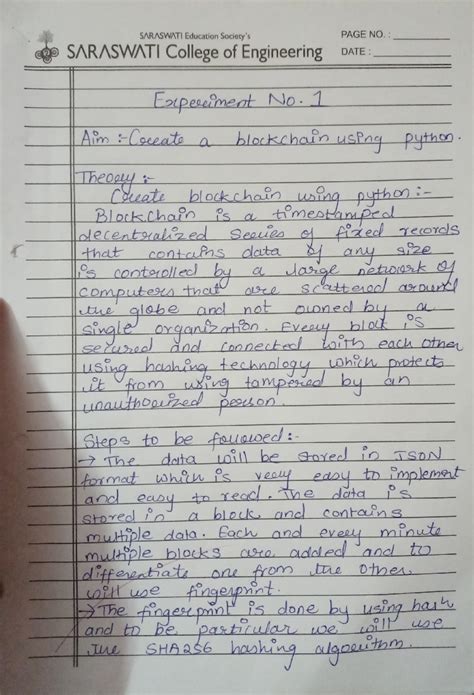 SARASWATI Education Society's
SARASWATI College of Engineering
PAGE NO. :
DATE :
Experiment No. 1
Aim :- Create a blockchain using python.
Theory :-
Create blockchain using python:-
Blockchain is a timestamped
decentralized series of fixed records
that contains data of any size
is controlled by a large network of
computers that are scattered around
the globe and not owned by a
single organization. Every block is
secured and connected with each other
using hashing technology which protects
it from using tampered by an
unauthorized person.
Steps to be followed:-
→ The data will be stored in JSON
format which is very easy to implement
and easy to read. The data is
stored in a block and contains
multiple data. Each and every minute
multiple blocks are added and to
differentiate one from the other
will use fingerprint.
→ The fingerprint is done by using hash
and to be particular we will use
the SHA256 hashing algorithm.